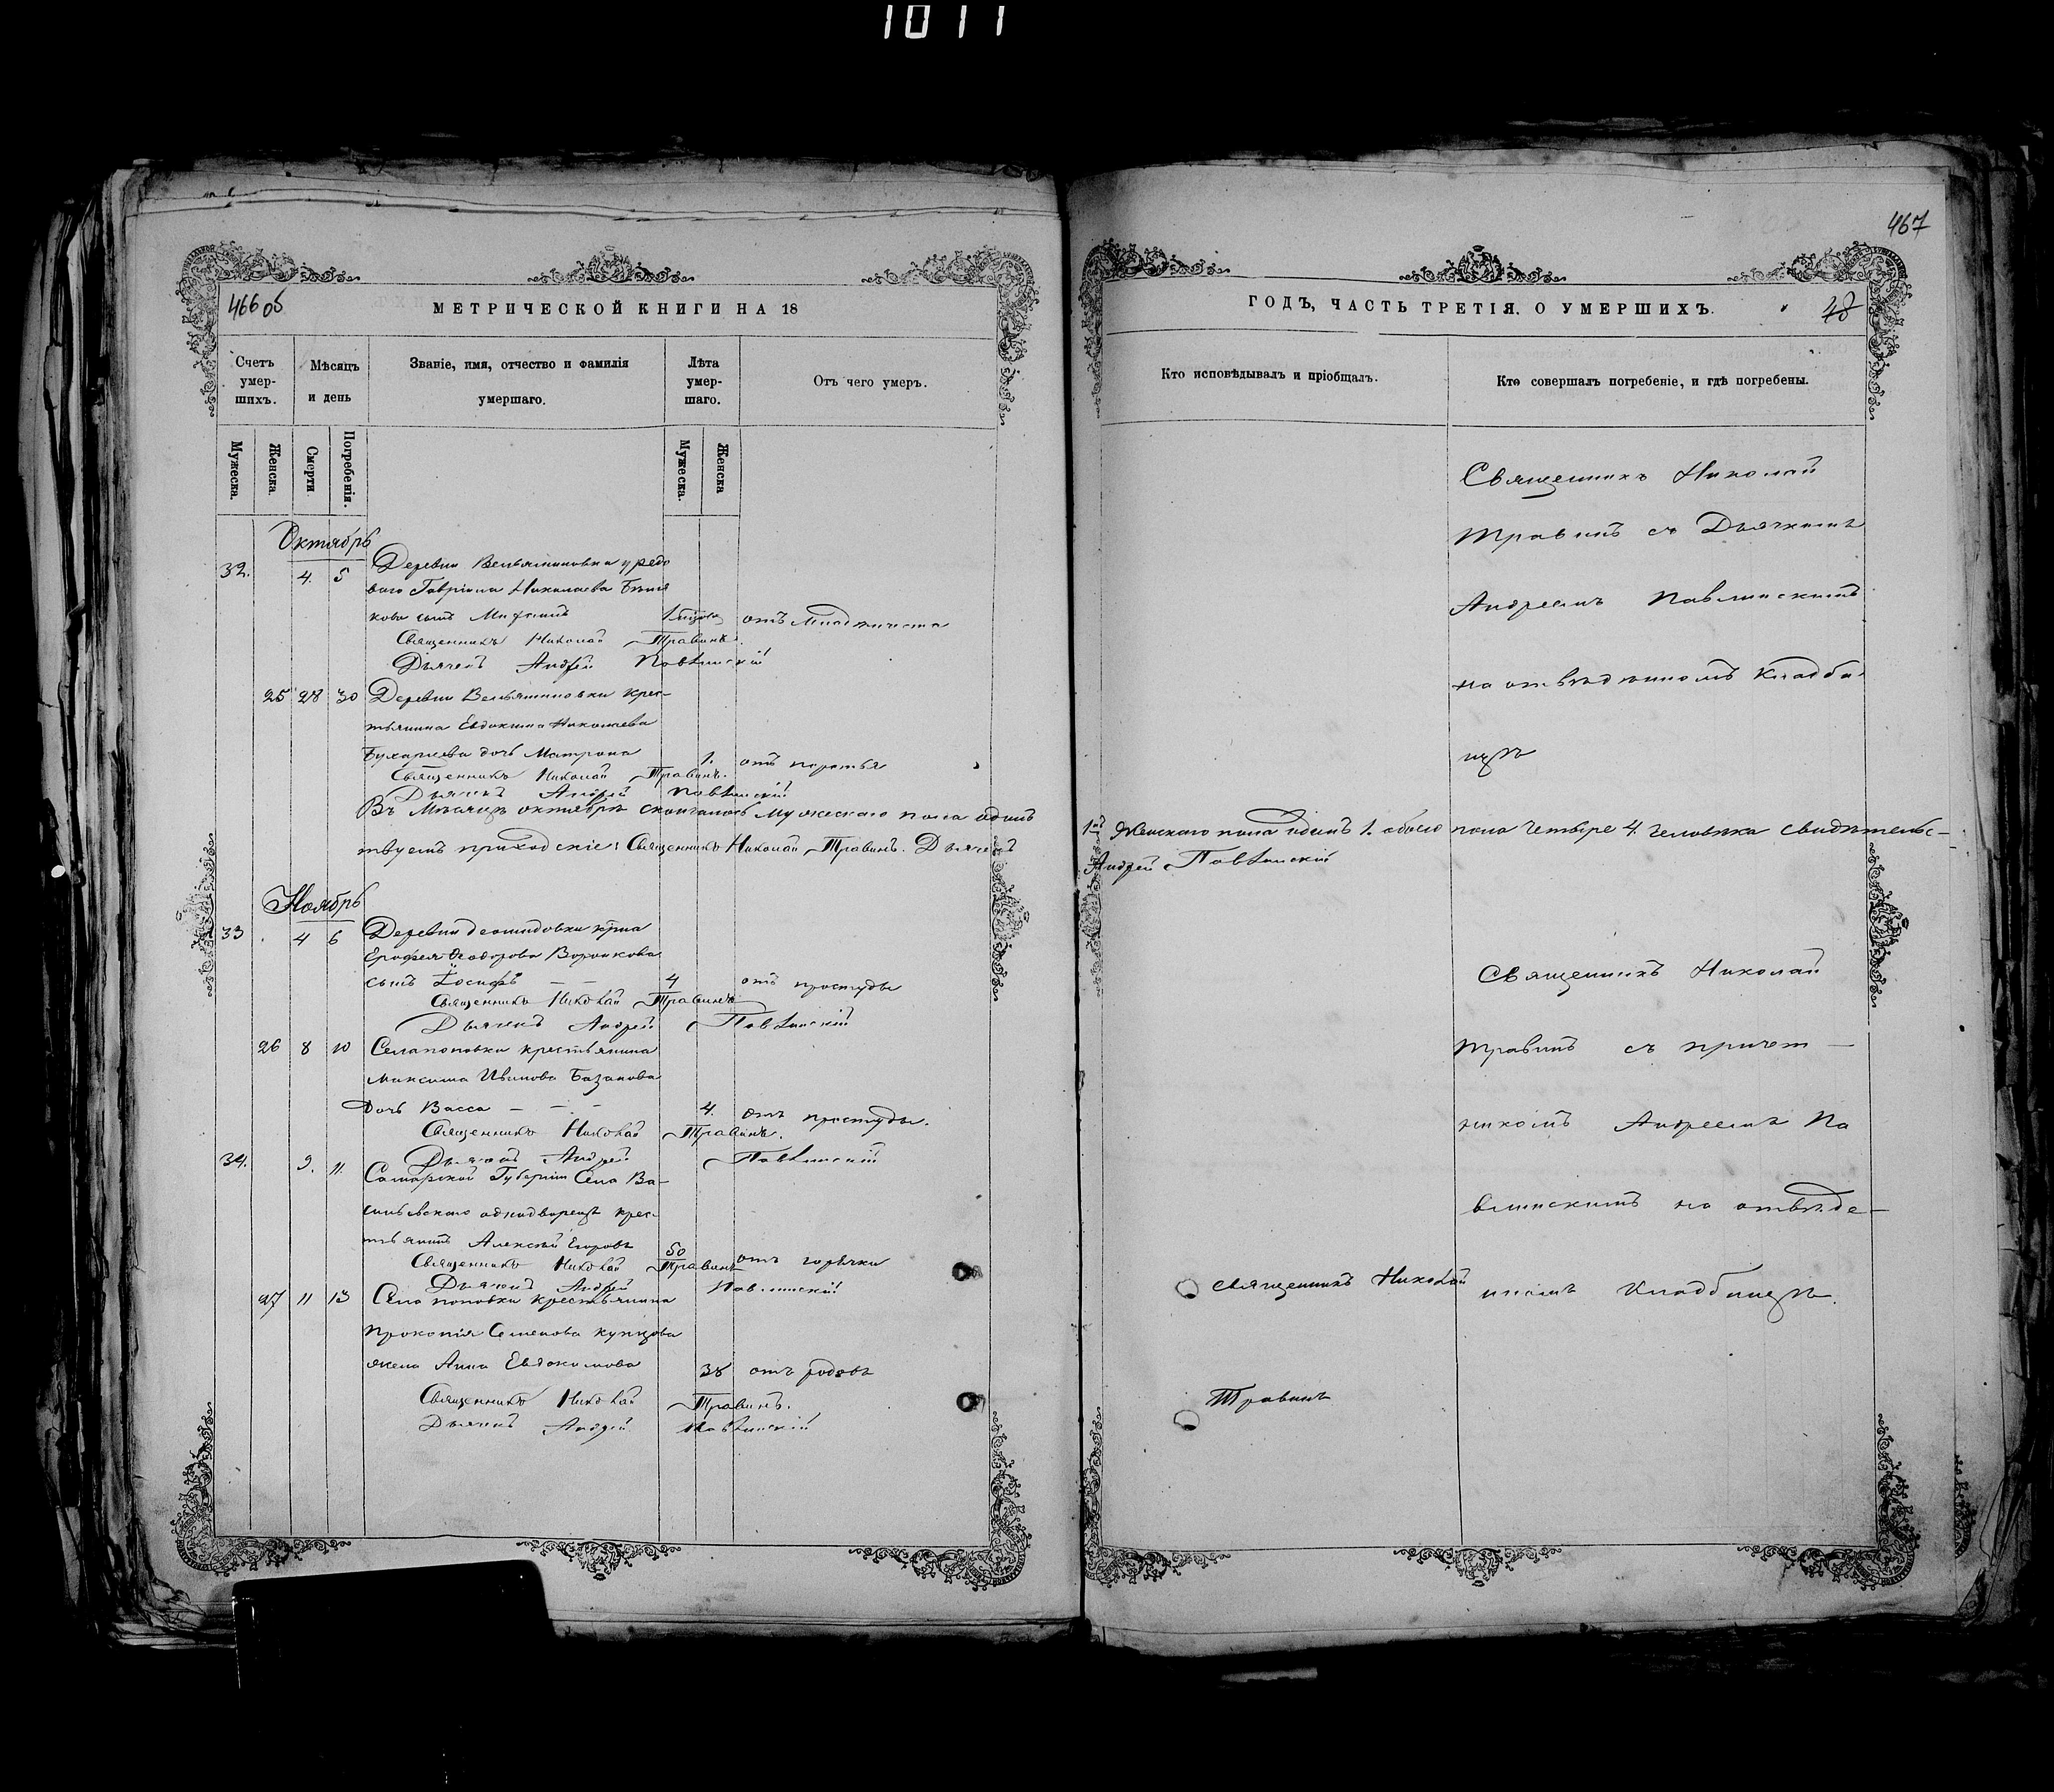 1011
467
466 об
МЕТРИЧЕСКОЙ КНИГИ НА 18
ГОДЪ, ЧАСТЬ ТРЕТІЯ. О УМЕРШИХЪ.
48
Счетъ умер-шихъ.
Мѣсяцъ и день
Званіе, имя, отчество и фамилія умершаго.
Лѣта умер-шаго.
Отъ чего умеръ.
Кто исповѣдывалъ и пріобщалъ.
Кто совершалъ погребеніе, и гдѣ погребены.
Мужеска.
Женска.
Смерти
Погребенія.
Мужеска.
Женска
Октябрь
32. 4. 5 Деревни Вельяминовки рядо
ваго Гавріила Николаева
кова сынъ отъ
Священникъ Николай Травинъ.
Дьячекъ Андрей Павлинскій
25 28 30 Деревни Вельяминовки крес-
тьянина Евдокима Николаева
Бухарцева дочь Матрона 1. отъ
Священникъ Николай Травинъ.
Дьячекъ Андрей Павлинскій
Въ Мѣсяцѣ октябрѣ скончалось мужескаго пола одинъ
1ий Женскаго пола одинъ 1. обоего пола четыре 4. человѣка свидѣтельс-
твуемъ приходскіе: Священникъ Николай Травинъ. Дьячекъ
Андрей Павлинскій
Священникъ Николай
Травинъ съ Дьячкомъ
Андреемъ Павлинскимъ
на отвѣденномъ кладби
щѣ
Ноябрь
33 4 6 Деревни демидовки крна
Ерофея Ѳеодорова Воронкова
сынъ Іосифъ — — 4 отъ простуды
Священникъ Николай Травинъ
Дьячекъ Андрей Павлинскій
26 8 10 Села поповки крестьянина
Максима Иванова Базанова
дочь Васса — — 4. отъ простуды.
Священникъ Николай Травинъ.
Дьячекъ Андрей Павлинскій
34. 9. 11. Самарской Губерніи Села Ва-
сильевскаго однодворецъ крес-
тьянинъ Алексѣй Егоровъ 50 отъ горячки
Священникъ Николай Травинъ
Дьячекъ Андрей Павлинскій
27 11 13 Села поповки крестьянина
Прокопія Семенова купцова
жена Анна Евдокимова 38 отъ родовъ
Священникъ Николай Травинъ.
Дьячекъ Андрей Павлинскій
священникъ Николай
Травинъ
Священникъ Николай
Травинъ съ причет—
никомъ Андреемъ Па
влинскимъ на отвѣде—
нномъ Кладбищѣ.